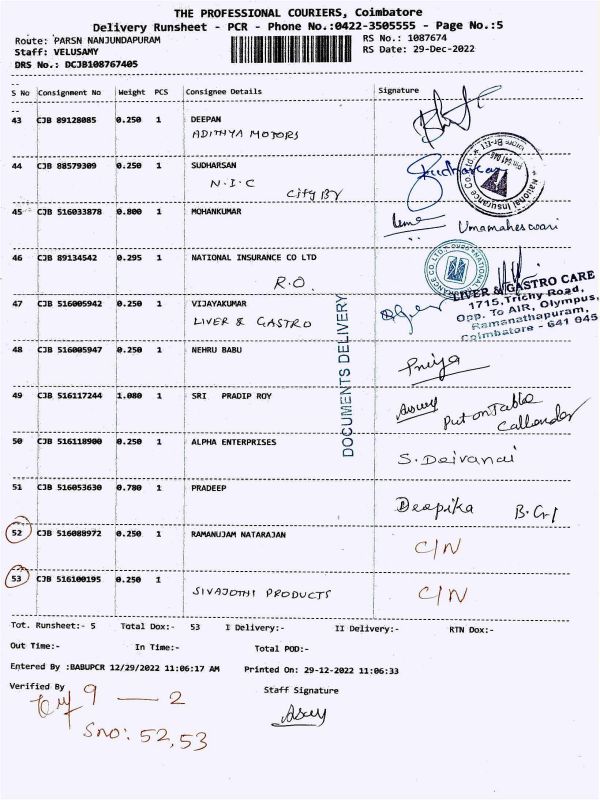 THE PROFESSIONAL COURIERS, Coimbatore
Delivery Runsheet - PCR - Phone No.:0422-3505555 - Page No.:5
Route: PARSN NANJUNDAPURAM RS No.: 1087674
Staff: VELUSAMY RS Date: 29-Dec-2022
DRS No.: DCJB108767405
S No Consignment No Weight PCS Consignee Details Signature
43 CJB 89128085 0.250 1 DEEPAN
ADITHYA MOTORS
44 CJB 88579309 0.250 1 SUDHARSAN Sudharsan
N.I.C
City Br
45 CJB 516033878 0.800 1 MOHANKUMAR Umamaheswari
46 CJB 89134542 0.295 1 NATIONAL INSURANCE CO LTD
R.O.
National Insurance Co
LIVER & GASTRO CARE
1715, Trichy Road,
Opp. To AIR, Olympus,
Ramanathapuram,
Coimbatore - 641 045
47 CJB 516005942 0.250 1 VIJAYAKUMAR
LIVER & GASTRO
DOCUMENTS DELIVERY
48 CJB 516005947 0.250 1 NEHRU BABU Priya
49 CJB 516117244 1.080 1 SRI PRADIP ROY
Put on Table
Callender
50 CJB 516118900 0.250 1 ALPHA ENTERPRISES S. Deivanai
51 CJB 516053630 0.780 1 PRADEEP Deepika
52 CJB 516088972 0.250 1 RAMANUJAM NATARAJAN C/N
53 CJB 516100195 0.250 1 SIVAJOTHI PRODUCTS C/N
Tot. Runsheet:- 5 Total Dox:- 53 I Delivery:- II Delivery:- RTN Dox:-
Out Time:- In Time:- Total POD:-
Entered By :BABUPCR 12/29/2022 11:06:17 AM Printed On: 29-12-2022 11:06:33
Verified By Staff Signature
9 — 2
Sno: 52,53